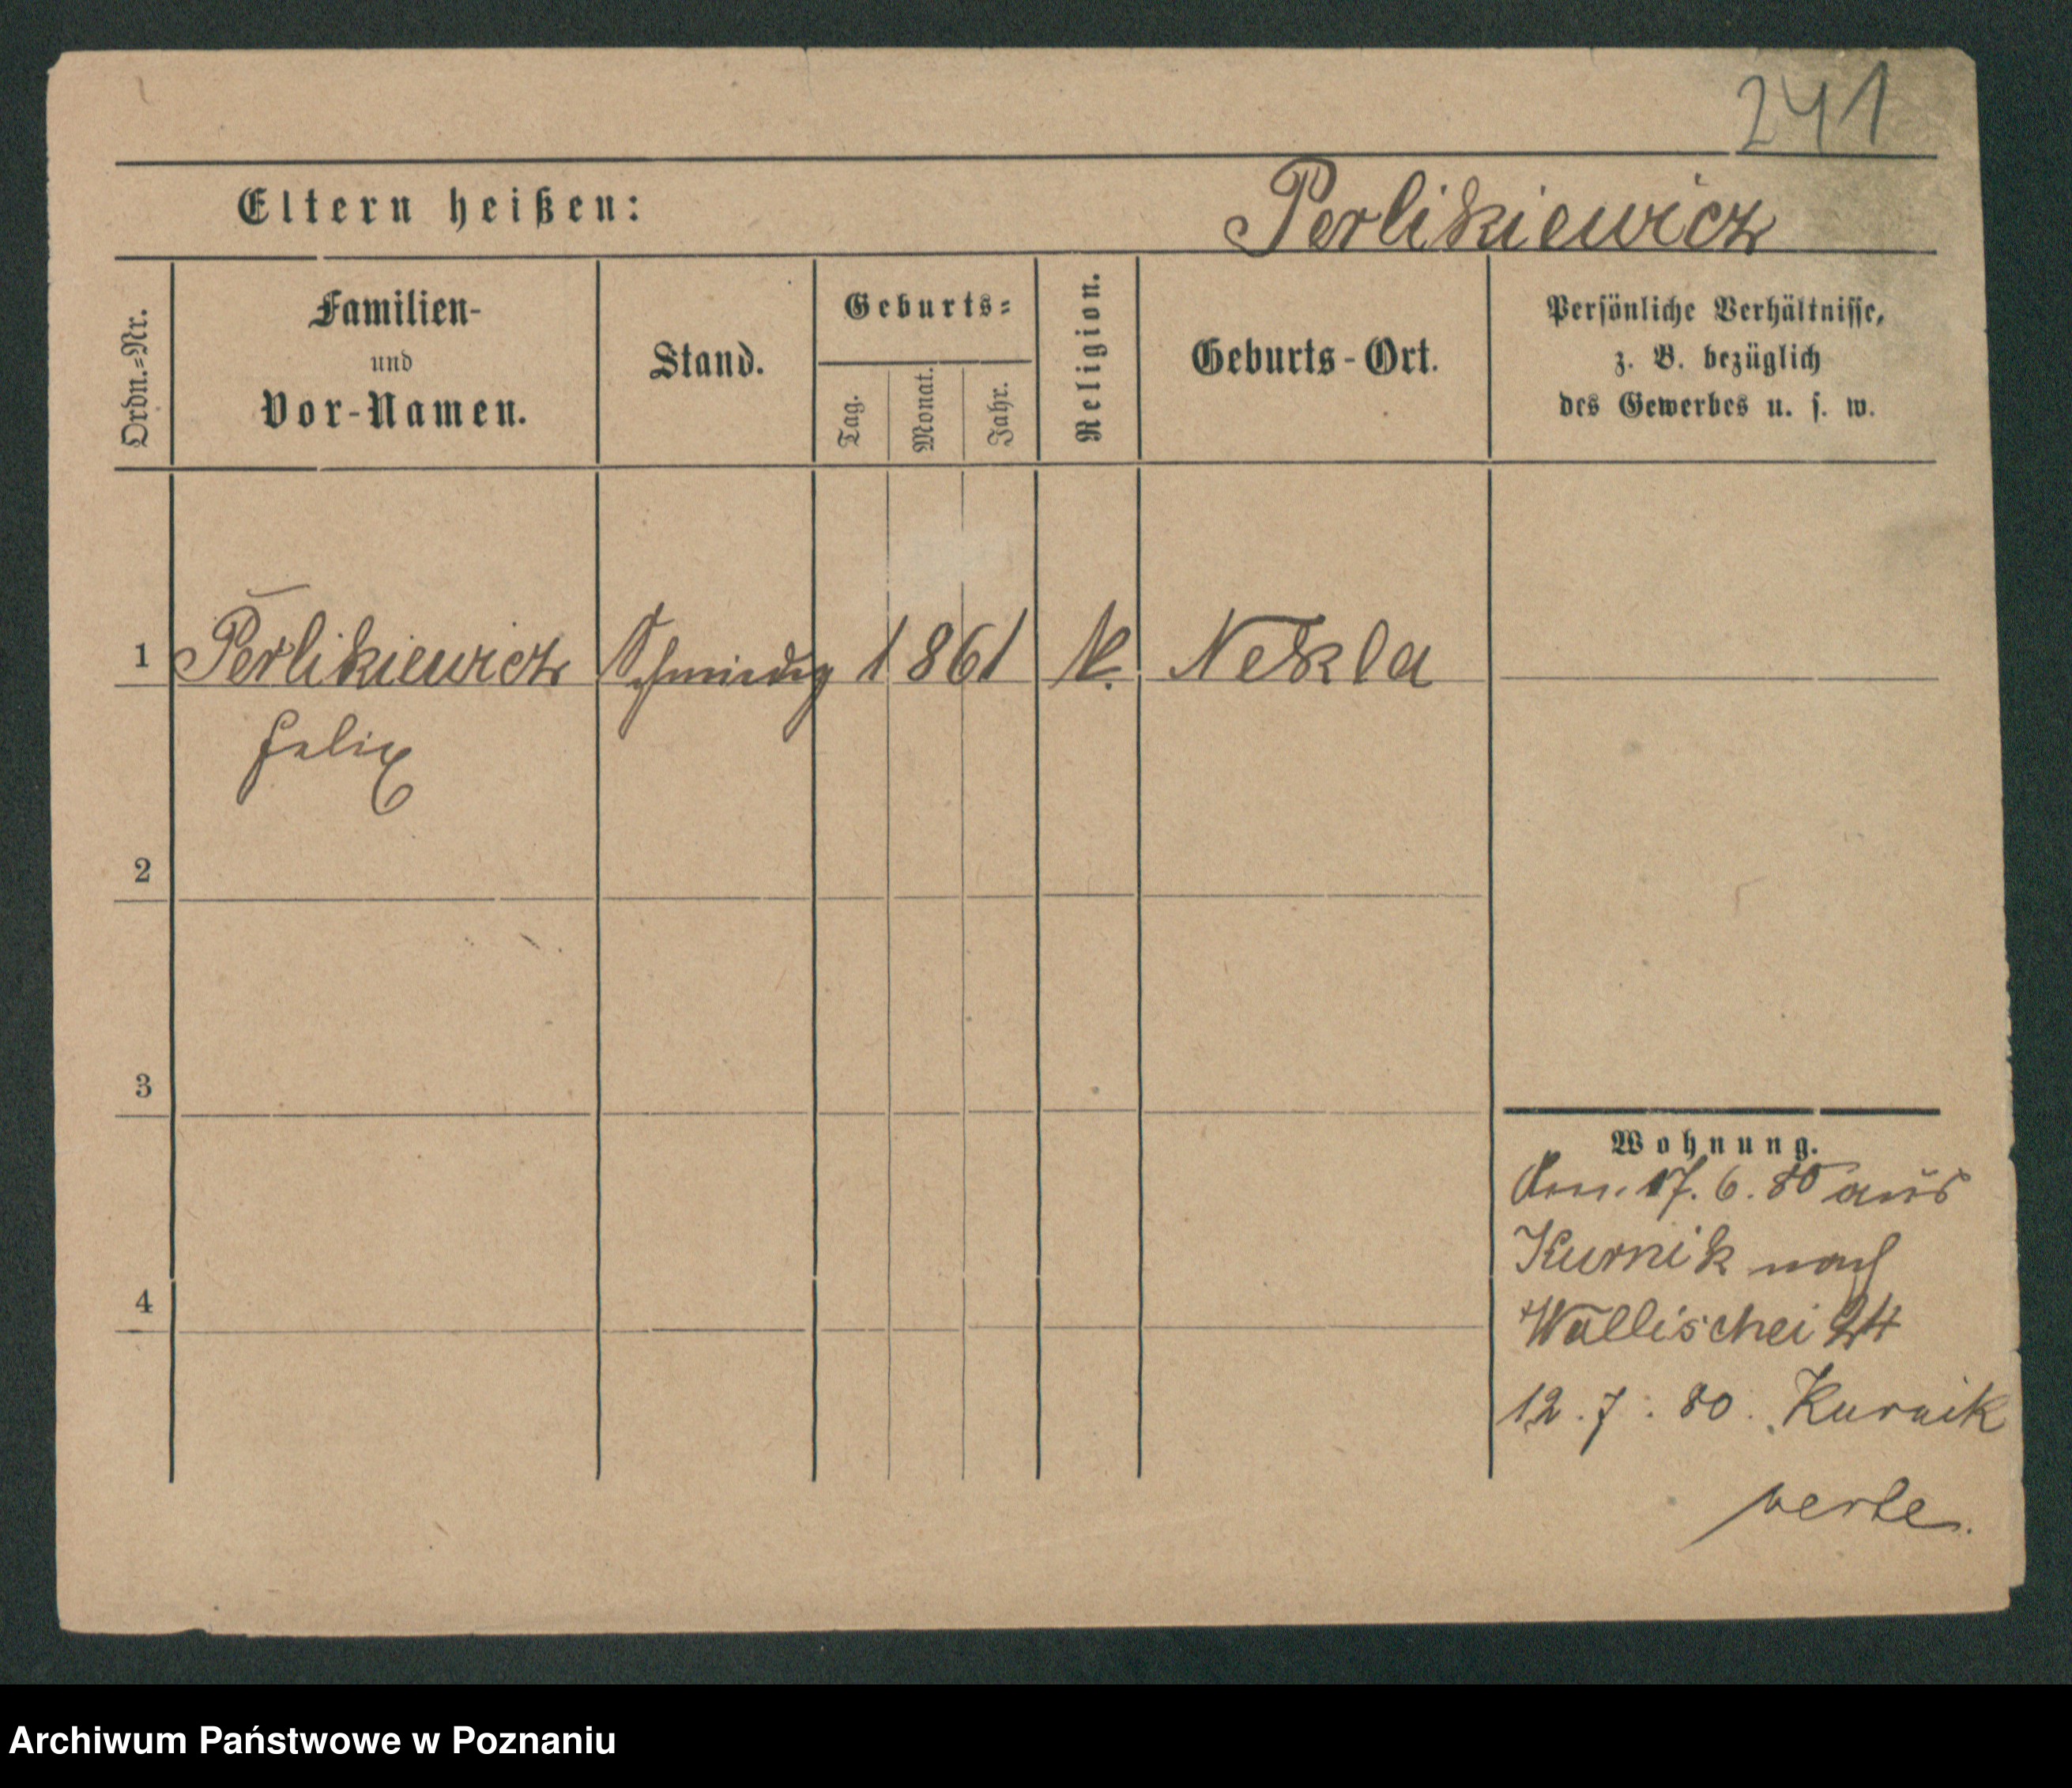 241
Eltern heißen:
Perlikiewicz
Ordn.=Nr.
Familien-
und
Vor-Namen.
Stand.
Geburts=
Tag.
Monat.
Jahr.
Religion.
Geburts-Ort.
Persönliche Verhältnisse,
z. B. bezüglich
des Gewerbes u. s. w.
1 Perlikiewicz 1861 K. Nekla
Felix
2
3
4
Wohnung.
17. 6. 80 aus
Kurnik nach
Wallischei 24
12. 7. 80. Kurnik
verte.
Archiwum Państwowe w Poznaniu